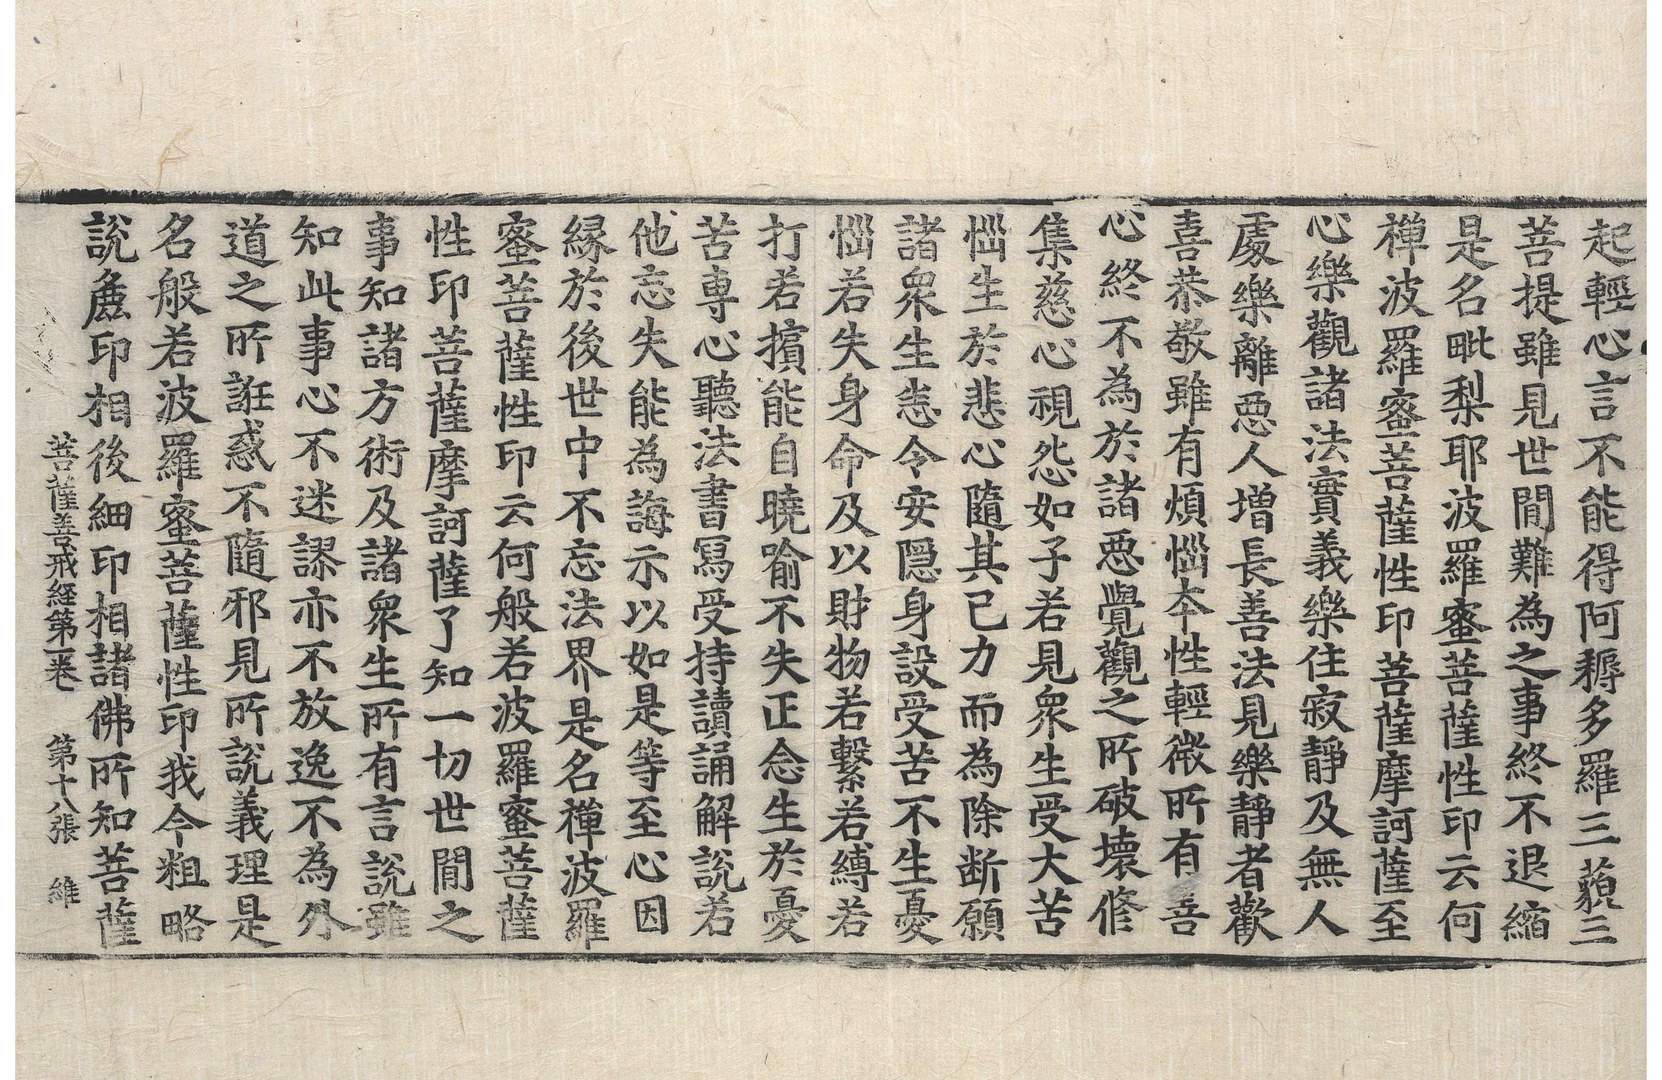 起輕心言不能得阿耨多羅三藐三
菩提雖見世間難為之事終不退縮
是名毗梨耶波羅蜜菩薩性印云何
禪波羅蜜菩薩性印菩薩摩訶薩至
心樂觀諸法實義樂住寂靜及無人
處樂離惡人增長善法見樂靜者歡
喜恭敬雖有煩惱本性輕微所有善
心終不為於諸惡覺觀之所破壞修
集慈心視怨如子若見眾生受大苦
惱生於悲心隨其己力而為除斷願
諸眾生悉令安隱身設受苦不生憂
惱若失身命及以財物若繫若縛若
打若擯能自曉喻不失正念生於憂
苦專心聽法書寫受持讀誦解說若
他忘失能為誨示以如是等至心因
緣於後世中不忘法界是名禪波羅
蜜菩薩性印云何般若波羅蜜菩薩
性印菩薩摩訶薩了知一切世間之
事知諸方術及諸眾生所有言說雖
知此事心不迷謬亦不放逸不為外
道之所誑惑不隨邪見所說義理是
名般若波羅蜜菩薩性印我今粗略
說麁印相後細印相諸佛所知菩薩
菩薩善戒經第一卷 第十八張 維